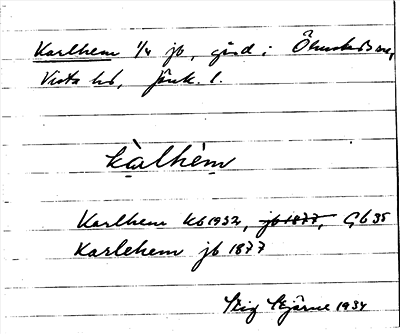 Karlhem 1/4 jb, gård i Ölmstads sn,
Vista hd, Jönk. l.
kàlhèm
Karlhem Kb 1932, jb 1877, Gb 35
Karlehem jb 1877
Stig Stjärne 1934